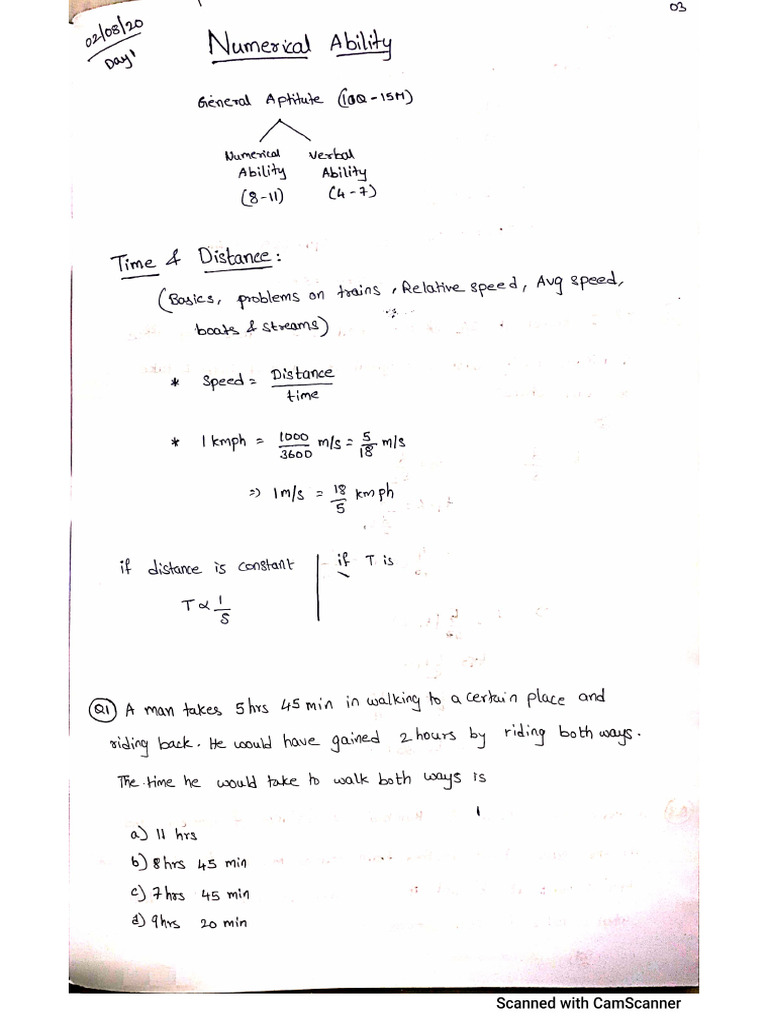 03
02/08/20
Day 1
Numerical Ability
General Aptitute (10Q - 15M)
Numerical Ability (8 - 11)
Verbal Ability (4 - 7)
Time & Distance :
(Basics, problems on trains, Relative speed, Avg speed,
boats & streams)
* Speed = Distance / time
* 1 kmph = 1000/3600 m/s = 5/18 m/s
=> 1 m/s = 18/5 kmph
if distance is constant
T ∝ 1/S
if T is
Q1 A man takes 5 hrs 45 min in walking to a certain place and
riding back. He would have gained 2 hours by riding both ways.
The time he would take to walk both ways is
a) 11 hrs
b) 8 hrs 45 min
c) 7 hrs 45 min
d) 9 hrs 20 min
Scanned with CamScanner